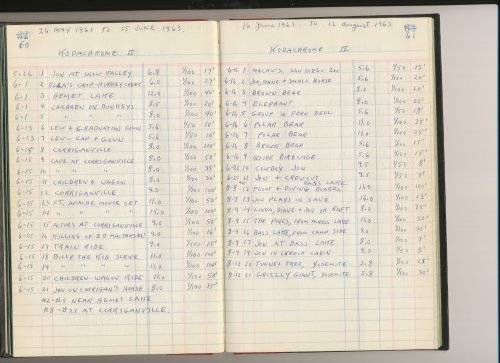 26 MAY 1963 TO 15 JUNE 1963.
60
KODACHROME II
5-26 1 JON AT SNOW VALLEY 6.8 1/100 17'
6-1 2 CAMP-HURKEY CREEK 6.0 1/100 37'
6-1 3 HEMET LAKE 12.0 1/100 40'
6-1 4 CHILDREN ON DONKEYS 8.5 1/100 20'
6-1 5 " " " 8.0 1/100 40'
6-13 6 LEW + GRADUATION GOWN 5.6 1/50 10'
6-13 7 LEW - CAP + GOWN 5.6 1/50 10'
6-15 8 CORRIGANVILLE 8.0 1/100 100'
6-15 9 CAVE AT CORRIGANVILLE 8.0 1/100 50'
6-15 10 " " " 8.0 1/100 35'
6-15 11 CHILDREN + WAGON 8.0 1/100
6-15 12 CORRIGANVILLE 8.0 1/100 100'
6-15 13 FT. APACHE MOVIE SET 11.0 1/100 100'
6-15 14 " " " " 15.0 1/100 100'
6-15 15 ACTORS AT CORRIGANVILLE 9.0 1/100 50'
6-15 16 KILLING OF ED MASTERSON 9.0 1/100 50'
6-15 17 TRAIN RIDE 9.0 1/100 15'
6-15 18 BILLY THE KID SCENE 11.0 1/100 100'
6-15 19 " " " " 11.0 1/100 100'
6-15 20 CHILDREN-WAGON RIDE 11.0 1/100 50'
6-15 21 JON ON CORRIGAN'S HORSE 8.0 1/100 15'
#2-#5 NEAR HEMET LAKE
#8-#21 AT CORRIGANVILLE.
16 June 1963 TO 12 August 1963
61
KODACHROME II
6-16 1 MACAWS, SAN DIEGO ZOO 5.6 1/50 15'
6-16 2 JON, DIANE + SMALL HORSE 5.6 1/100 20'
6-16 3 BROWN BEAR 8.0 1/100 20'
6-16 4 ELEPHANT 8.0 1/100 20'
6-16 5 GROUP IN FERN DELL 5.6 1/50 18'
6-16 6 POLAR BEAR 11.0 1/100 25'
6-16 7 POLAR BEAR 11.0 1/100 25'
6-16 8 BROWN BEAR 5.6 1/100 15'
6-16 9 INSIDE BIRDCAGE 5.6 1/100 15'
6-21 10 COWBOY JON 9.5 1/50 8'
6-21 11 JON + CREWCUT 9.5 1/50 7'
BASS LAKE
8-8 12 FLOAT + DIVING BOARDS 16.0 1/100 100'
8-8 13 JON PLAYS IN SAND 16.0 1/100 13'
8-9 14 LINDA, DIANE + JON IN RAFT 8.0 1/100 35'
8-9 15 THE PINES, FROM ACROSS LAKE 11.0 1/100
8-9 16 BASS LAKE, FROM CAMP SIDE 11.0 1/100
8-9 17 JON AT BASS LAKE 8.0 1/100 7'
8-9 19 JON IN LEPRECH CABIN 8.0 1/50 8'
8-12 20 TUNNEL TREE, YOSEMITE 2.8 1/100 25'
8-12 21 GRIZZLY GIANT, YOSEMITE 2.8 1/100 30'